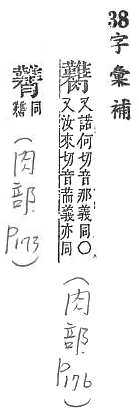 38
字彙補
又諾何切音那義同〇
又汝來切音荋義亦同
(肉部 P176)
同
(肉部 P173)